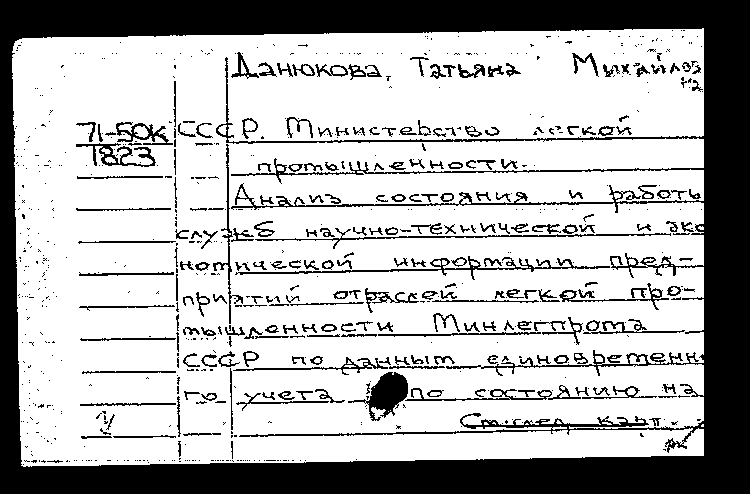 Данюкова, Татьяна Михайлов
на
71-50к СССР. Министерство легкой
1823
промышленности.
Анализ состояния и работы
служб научно-технической и эко
номической информации пред-
приятий отраслей легкой про-
мышленности Минлегпрома
СССР по данным единовременн
го учета по состоянию на
См.след. карт.